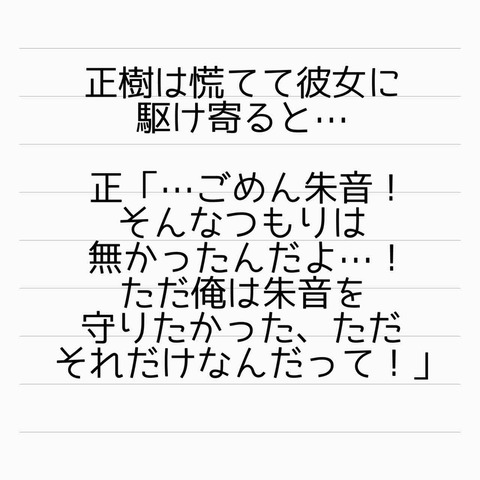 正樹は慌てて彼女に
駆け寄ると…
正「…ごめん朱音！
そんなつもりは
無かったんだよ…！
ただ俺は朱音を
守りたかった、ただ
それだけなんだって！」